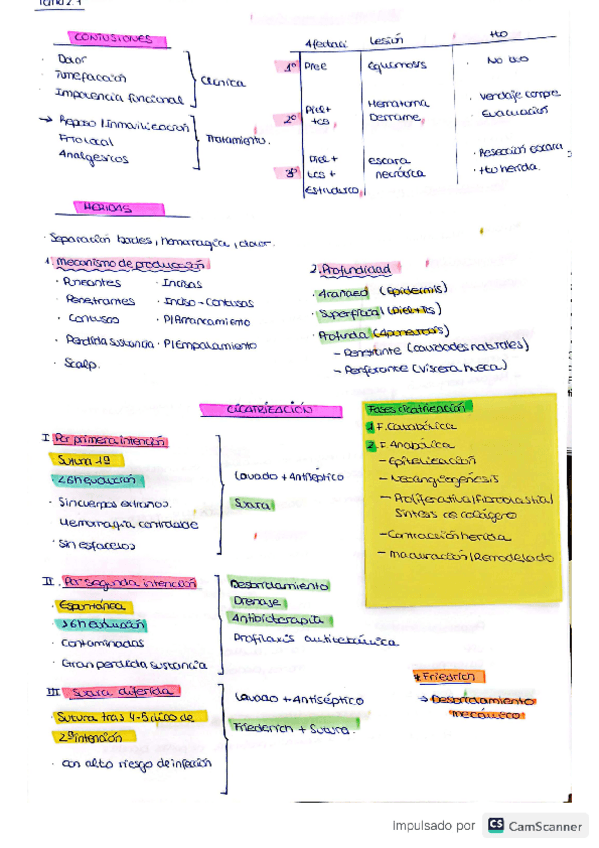 Tema 2.1
CONTUSIONES
· Dolor
· Tumefacción
· Impotencia funcional
Clínica
→ Reposo / Inmovilización
Frío local
Analgésicos
Tratamiento.
Afectació Lesión tto
1º Piel Equimosis · No tto
2º Piel + TCS Hematoma Derrame · Vendaje compre · Evacuación
3º Piel + TCS + Estructuras escara necrótica · Resección escara · tto herida.
HERIDAS
· Separación bordes, hemorragia, dolor.
1. Mecanismo de producción
· Punzantes · Incisas
· Penetrantes · Inciso-Contusas
· Contusas · P/Arrancamiento
· Perdida sustancia · P/Empalamiento
· Scalp.
2. Profundidad
· Arañazo (Epidermis)
· Superficial (Piel + TCS)
· Profunda (Aponeurosis)
- Penetrante (cavidades naturales)
- Perforante (Víscera hueca)
CICATRIZACIÓN
I Por primera intención
· Sutura 1ª
· <6h evolución
· Sin cuerpos extraños.
Hemorragia controlable
· Sin esfacelos
Lavado + Antiséptico
Sutura
Fases cicatrización
1 F. Catabólica
2 F. Anabólica
- Epitelización
- Neoangiogénesis
- Proliferativa/Fibroblastia/
Síntesis de colágeno
- Contracción herida
- Maduración/Remodelado
II. Por segunda intención
· Espontánea
· >6h evolución
· Contaminadas
· Gran perdida sustancia
Desbridamiento
Drenaje
Antibioterapia
Profilaxis antitetánica
III Sutura diferida
· Sutura tras 4-5 días de
2ª intención
· con alto riesgo de infección
Lavado + Antiséptico
Friederich + Sutura.
* Friedrich
→ Desbridamiento
mecánico
Impulsado por CS CamScanner